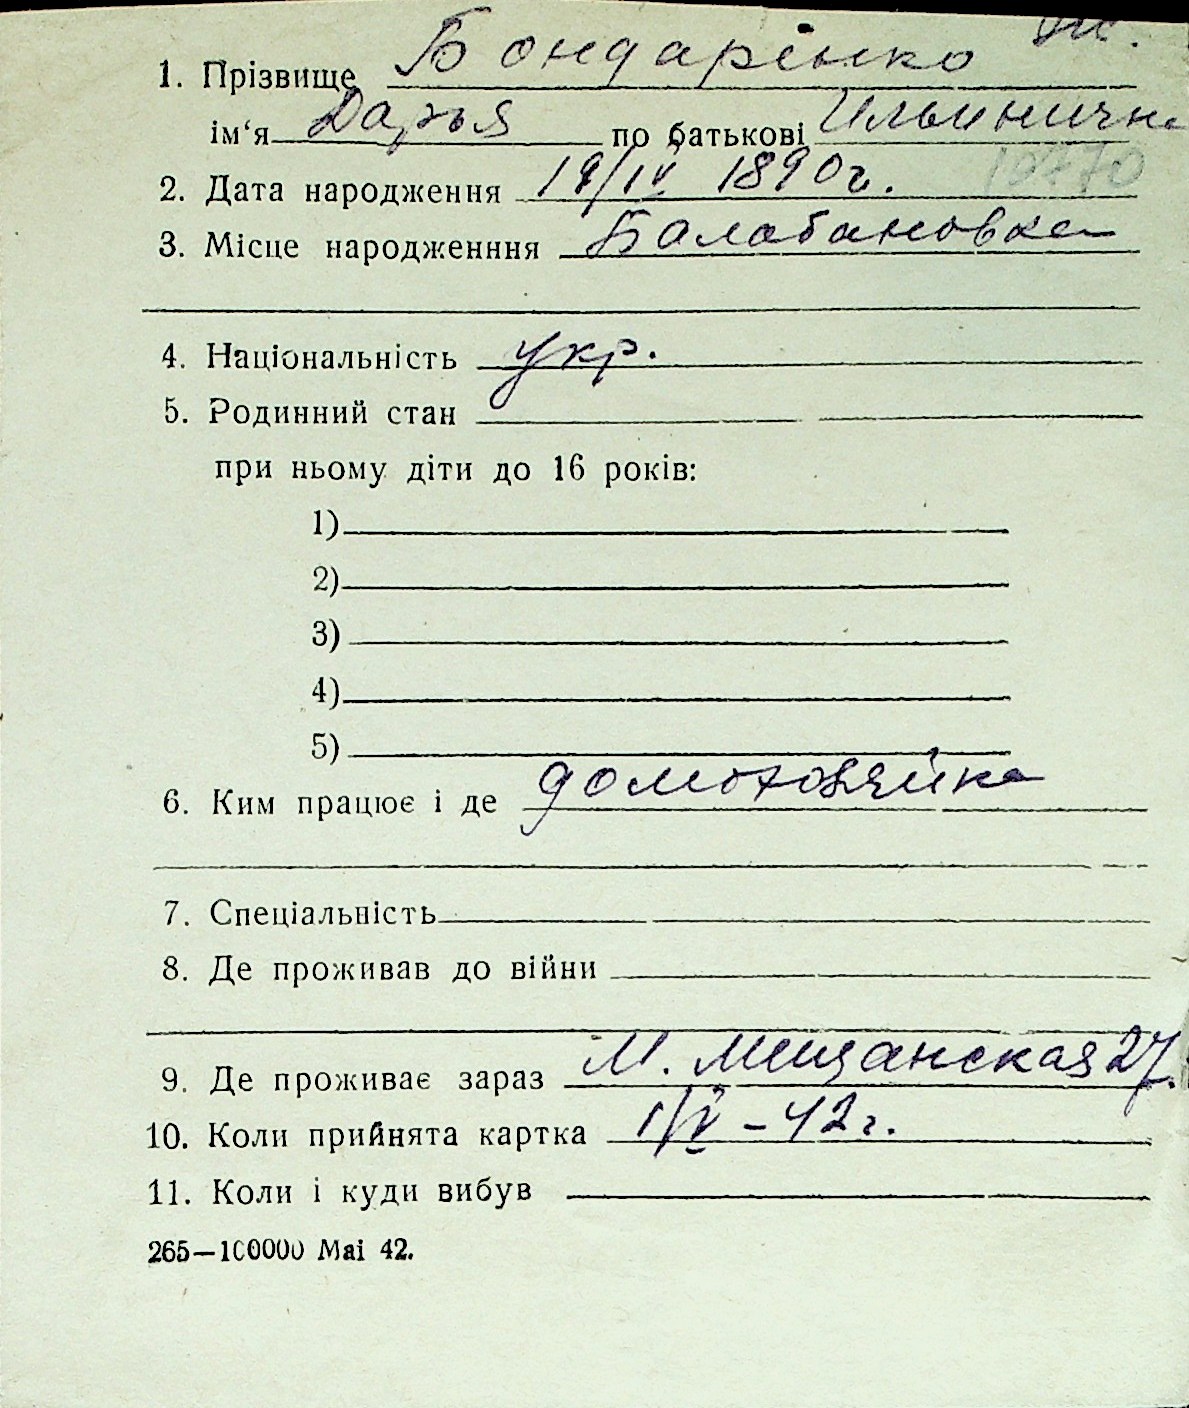 1. Прізвище Бондаренко
ім‘я Дарья по батькові Ильинична
2. Дата народження 19/IV 1890г.
3. Місце народженння Балабановка
4. Національність укр.
5. Родинний стан
при ньому діти до 16 років:
1)
2)
3)
4)
5)
6. Ким працює і де домохозяйка
7. Спеціальність
8. Де проживав до війни
9. Де проживає зараз М. Мещанская 27.
10. Коли прийнята картка 1/V – 42 г.
11. Коли і куди вибув
265—100000 Mai 42.